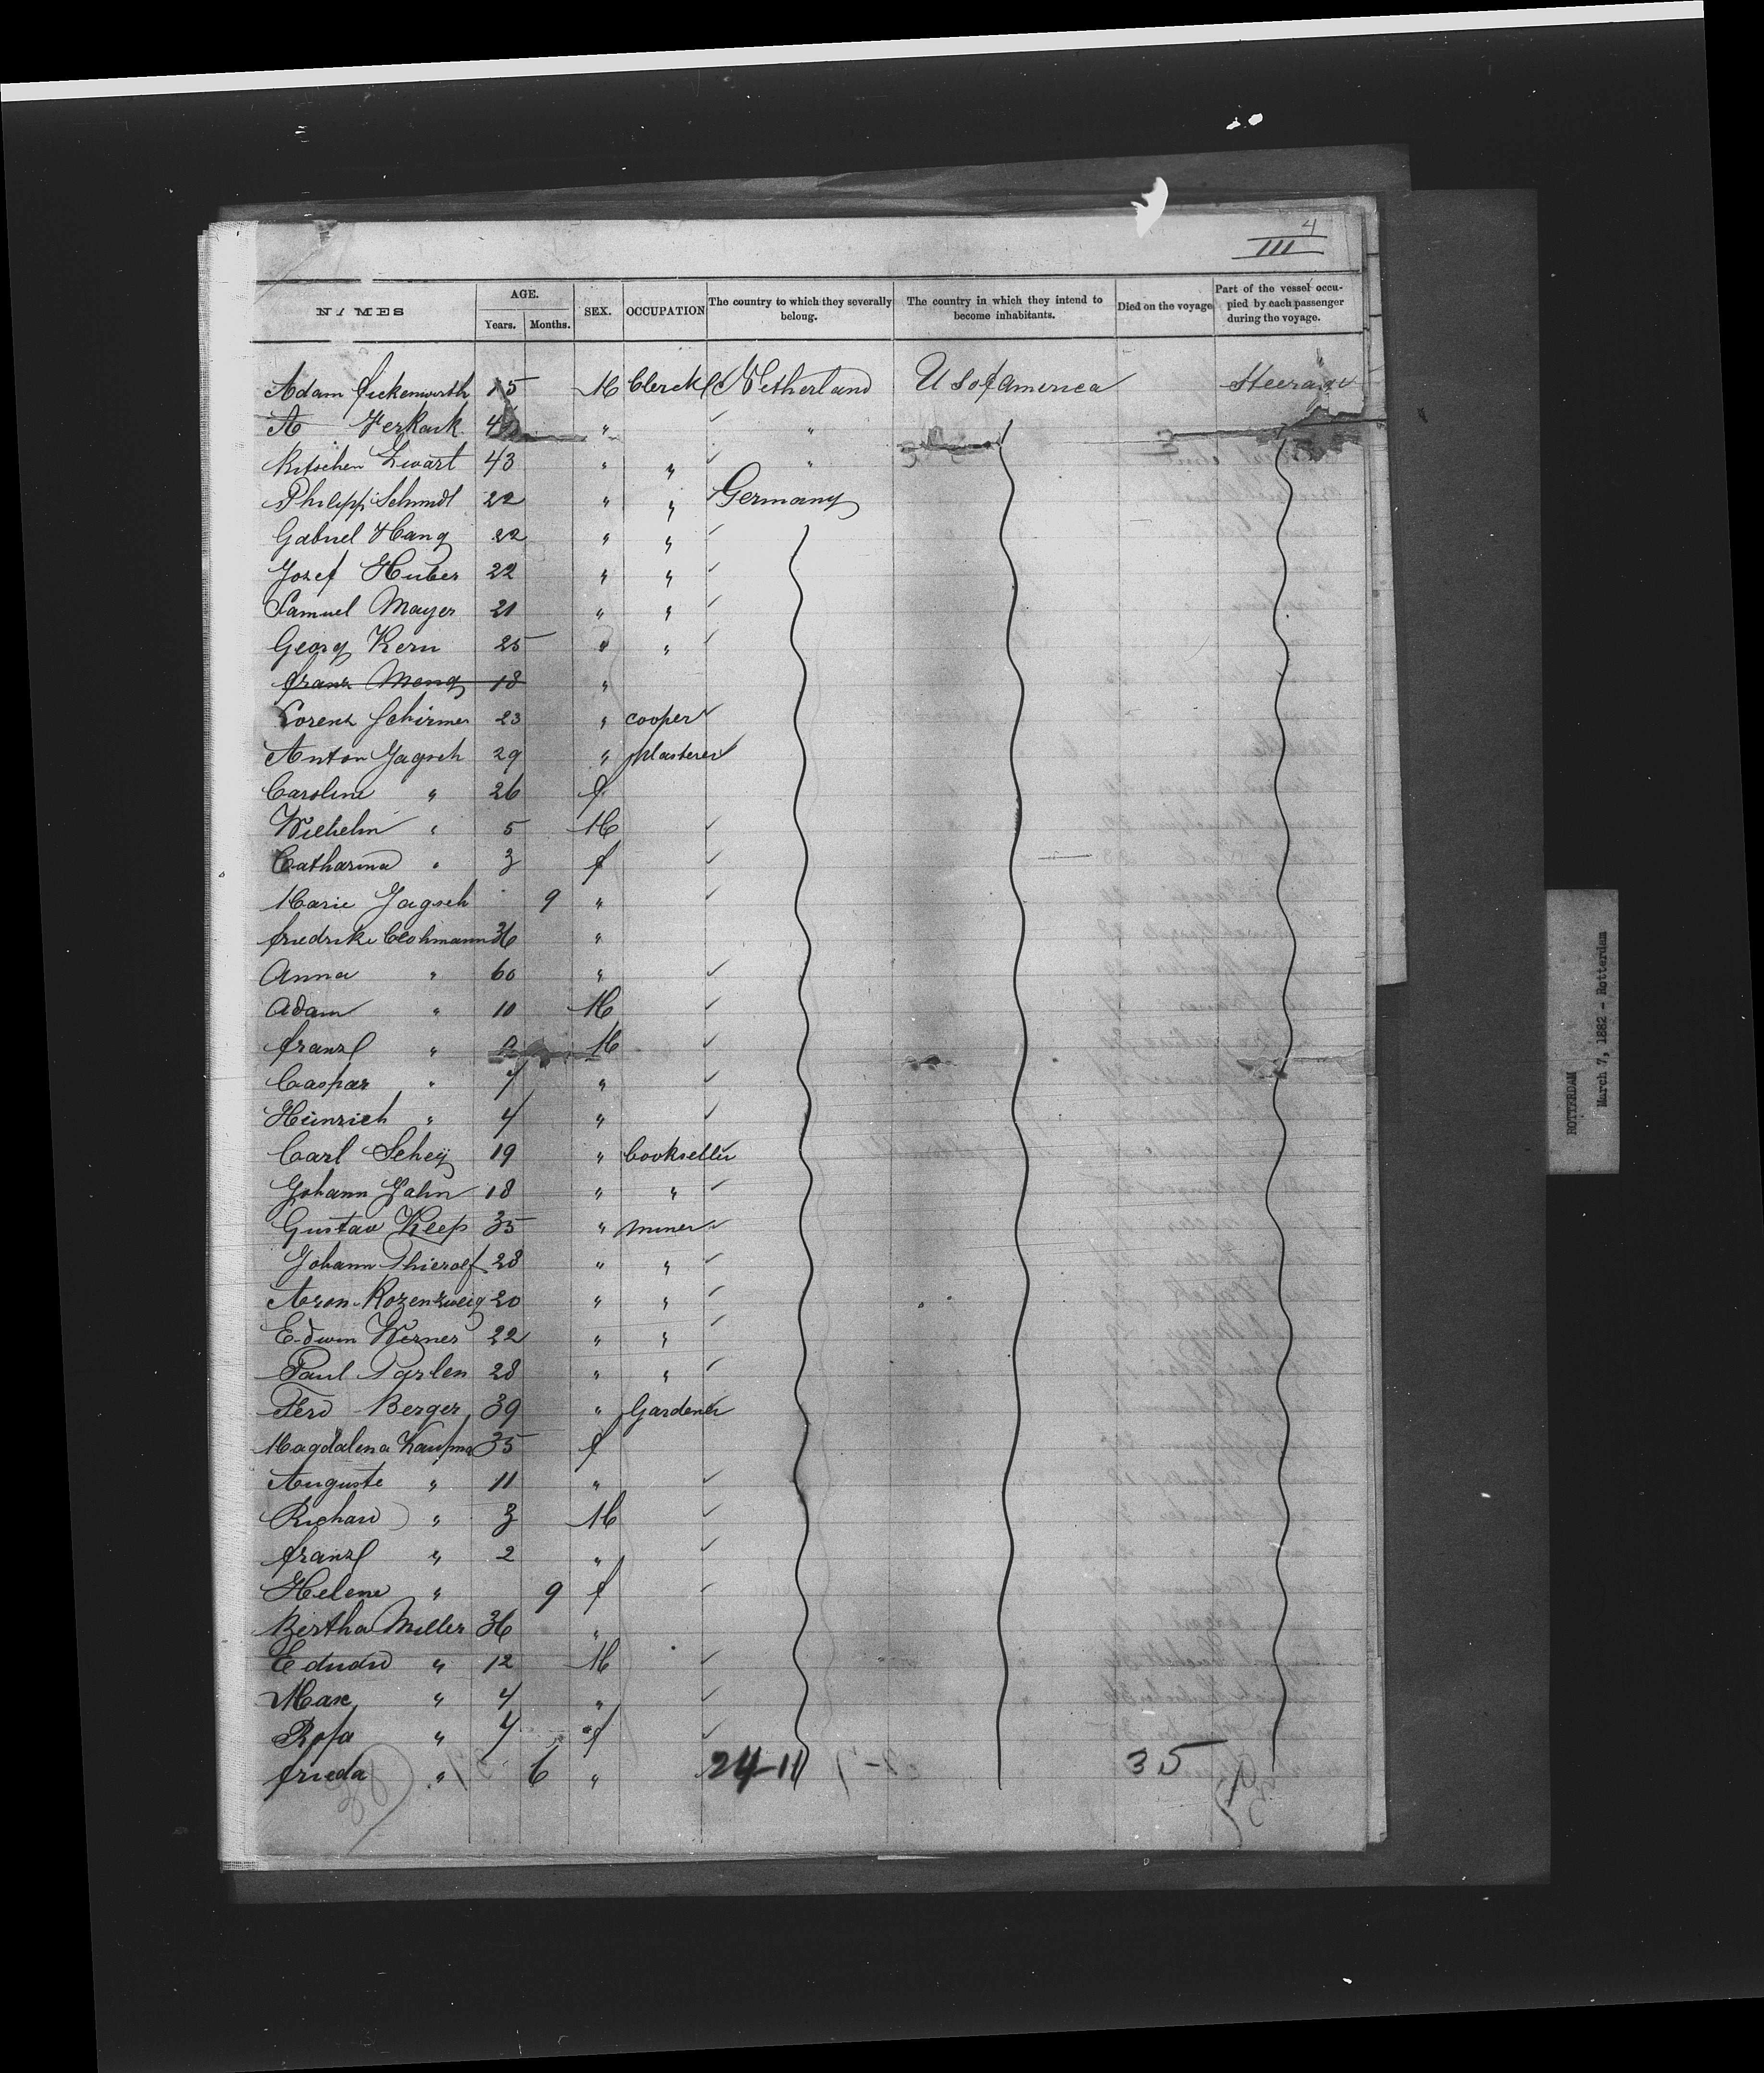 4
III
NAMES AGE. Years. Months. SEX. OCCUPATION The country to which they severally belong. The country in which they intend to become inhabitants. Died on the voyage Part of the vessel occupied by each passenger during the voyage.
Adam Fickenwirth 15 M Clerck Netherland U S of America Steerage
A Verkark 4 " "
Kitschen Zwart 43 " " "
Philipp Schmidt 22 " " Germany
Gabriel Hang 22 " "
Jozef Huber 22 " "
Samuel Mayer 21 " "
Georg Kern 25 " "
Franz Meng 18 "
Lorenz Schirmer 23 " cooper
Anton Jagsch 29 " plasterer
Caroline " 26 f
Wilhelm " 5 M
Catharina " 3 f
Marie Jagsch 9 "
Friedrike 36 "
Anna " 60 "
Adam " 10 M
Franz " M
Caspar " 7 "
Heinrich " 4 "
Carl Scheij 19 " Bookseller
Johann Jahn 18 " "
Gustav Kleps 35 " miner
Johann Thierolf 28 " "
Aron Rozenzweig 20 " "
Edwin Werner 22 " "
Paul Parlen 28 " "
Ferd Berger 39 " Gardener
Magdalena Kaufma 35 f
Auguste " 11 "
Richard " 3 M
Franz " 2 "
Helene " 9 f
Bertha Miller 36 "
Eduard " 12 M
Max " 4 "
Rosa " 4 f
Frieda " 6 " 24-11 35
ROTTERDAM
March 7, 1882 - Rotterdam